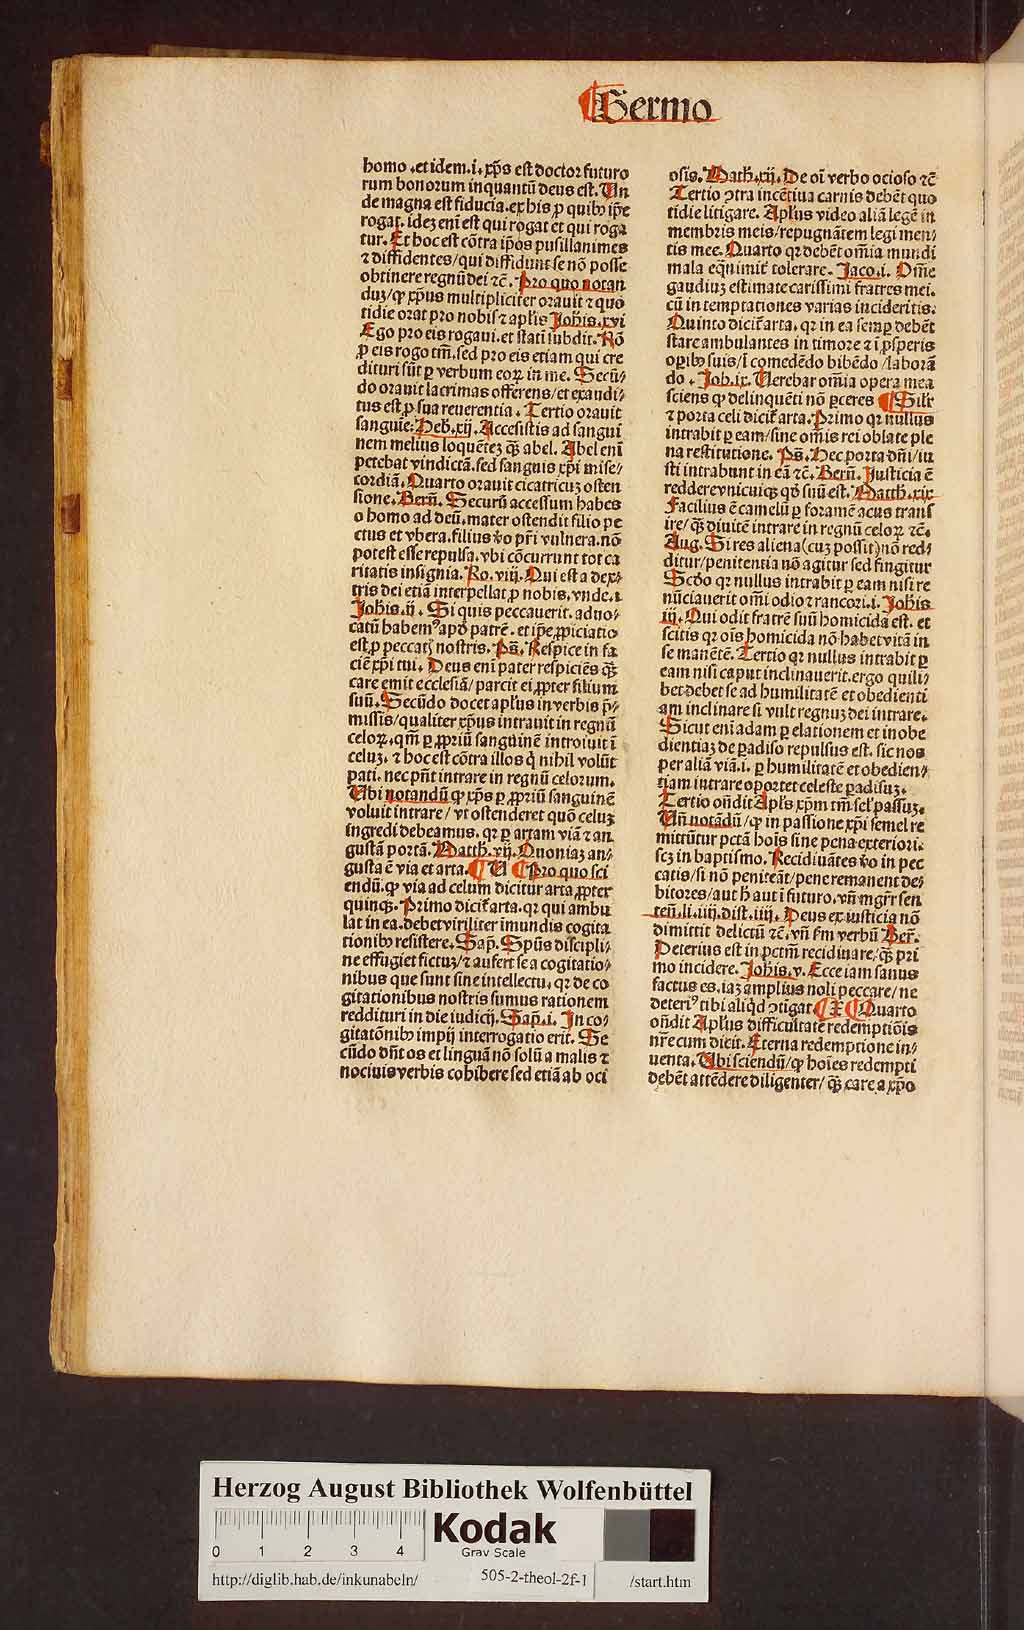 Sermo
homo .et idem.i. xp̄s est doctor futuro
rum bonorum inquantū deus est. Un
de magna est fiducia. ex his ꝓ quibꝫ ip̄e
rogat. ideꝫ enī est qui rogat et qui roga
tur. Et hoc est cōtra ip̄os pusillanimes
⁊ diffidentes/qui diffidunt se nō posse
obtinere regnū dei ⁊c̄. Pro quo notan
duꝫ/ꝙ xp̄us multipliciter orauit ⁊ quo
tidie orat pro nobis ⁊ apl̄is Joh̄is.xvi
Ego pro eis rogaui. et statī subdit. Nō
ꝓ eis rogo tm̄. sed pro eis etiam qui cre
dituri sūt ꝑ verbum eoꝝ in me. Secū⸗
do orauit lacrimas offerens/et exaudi⸗
tus est ꝓ sua reuerentia. Tertio orauit
sanguīe. Heb.xij. Accesistis ad sangui
nem melius loquēteꝫ qꝫ̄ abel. Abel enī
petebat vindictā. sed sanguis xp̄i mise⸗
cordiā. Quarto orauit cicatricuꝫ osten
sione. Bern̄. Securū accessum habes
o homo ad deū. mater ostendit filio pe
ctus et vbera. filius v̄o pr̄i vulnera. nō
potest esse repulsa. vbi cōcurrunt tot ca
ritatis insignia. Ro. viij. Qui est a dex⸗
tris dei etiā interpellat ꝓ nobis. vnde.i.
Joh̄is.ij. Si quis peccauerit. aduo⸗
catū habemꝰ apd̄ patrē. et ip̄e ꝓpiciatio
est ꝓ peccatꝭ nostris. Ps̄. Respice in fa
ciē xp̄i tui. Deus enī pater respiciēs qꝫ̄
care emit ecclesiā/parcit ei ꝓpter filium
suū. Secūdo docet apl̄us in verbis p̄⸗
missis/qualiter xp̄us intrauit in regnū
celoꝝ. qm̄ ꝑ ꝓpriū sanguinē introiuit ī
celuꝫ. ⁊ hoc est cōtra illos q̇ nihil volūt
pati. nec pn̄t intrare in regnū celorum.
Ubi notandū ꝙ xp̄s ꝑ ꝓpriū sanguinē
voluit intrare/vt ostenderet quō celuꝫ
ingredi debeamus. qꝛ ꝑ artam viā ⁊ an
gustā portā. Matth.vij. Quoniaꝫ an⸗
gusta ē via et arta. ¶ U ¶ Pro quo sci
endū. ꝙ via ad celum dicitur arta ꝓpter
quinqꝫ. Primo dicit̄ arta. qꝛ qui ambu
lat in ea. debet viriliter īmundis cogita
tionibꝫ resistere. Sap̄. Spūs discipli⸗
ne effugiet fictuꝫ/⁊ aufert se a cogitatio⸗
nibus que sunt sine intellectu. qꝛ de co
gitationibus nostris sumus rationem
reddituri in die iudicij. Sap̄.i. In co⸗
gitatōnibꝫ impij interrogatio erit. Se
cūdo dn̄t os et linguā nō solū a malis ⁊
nociuis verbis cobibere sed etiā ab oci
osis. Math̄.xij. De oī verbo ocioso ⁊c̄
Tertio ꝯtra incētiua carnis debēt quo
tidie litigare. Apl̄us video aliā legē in
membris meis/repugnātem legi men⸗
tis mee. Quarto qꝛ debēt om̄ia mundi
mala eq̄nimit̄ tolerare. Jaco.i. Om̄e
gaudiuꝫ estimate carissimi fratres mei.
cū in temptationes varias incideritis.
Quinto dicit̄ arta. qꝛ in ea semꝑ debēt
stare ambulantes in timore ⁊ ī ꝓsperis
oꝑibꝫ suis/ī comedēdo bibēdo/laborā
do. Job.ix. Uerebar om̄ia opera mea
sciens ꝙ delinquēti nō ꝑceres ¶ Sil̄r
⁊ porta celi dicit̄ arta. Primo qꝛ nullus
intrabit ꝑ eam/sine om̄is rei oblate ple
na restitutione. Ps̄. Hec porta dn̄i/iu
sti intrabunt in eā ⁊c̄. Bern̄. Justicia ē
reddere vnicuiqꝫ qd̄ suū est. Matth.xix
Facilius ē camelū ꝑ foramē acus trans
ire/qꝫ̄ diuitē intrare in regnū celoꝝ ⁊c̄.
Aug. Si res aliena (cuꝫ possit) nō red⸗
ditur/penitentia nō agitur sed fingitur
Scd̄o qꝛ nullus intrabit ꝑ eam nisi re
nūciauerit om̄i odio ⁊ rancori.i. Joh̄is
iij. Qui odit fratrē suū homicida est. et
scitis qꝛ oīs homicida nō habet vitā in
se manētē. Tertio qꝛ nullus intrabit ꝑ
eam nisi caput inclinauerit. ergo quili⸗
bet debet se ad humilitatē et obedienti
am inclinare si vult regnuꝫ dei intrare.
Sicut enī adam ꝑ elationem et inobe
dientiaꝫ de ꝑadiso repulsus est. sic nos
per aliā viā.i. ꝑ humilitatē et obedien⸗
tiam intrare oportet celeste ꝑadisuꝫ.
Tertio on̄dit Apl̄s xp̄m tm̄ sel̓ passuꝫ.
Un̄ notādū/ꝙ in passione xp̄i semel re
mittūtur pctā hoīs sine pena exteriori.
scꝫ in baptismo. Recidiuātes v̄o in pec
catis/si nō peniteāt/pene remanent de⸗
bitores/aut h̄ aut ī futuro. vn̄ mgr̄ sen
ten̄.li.iiij.dist.iiij. Deus ex iusticia nō
dimittit delictū ⁊c̄. vn̄ fm verbū Ber̄.
Peterius est in pctm̄ recidiuare/qꝫ̄ pri
mo incidere. Joh̄is.v. Ecce iam sanus
factus es. iaꝫ amplius noli peccare/ne
deteriꝰ tibi aliq̇d ꝯtigat ¶ X ¶ Quarto
on̄dit Apl̄us difficultatē redemptiōis
nr̄e cum dicit. Eterna redemptione in⸗
uenta. Ubi sciendū/ꝙ hoīes redempti
debēt attēdere diligenter/qꝫ̄ care a xp̄o
Herzog August Bibliothek Wolfenbüttel
0 1 2 3 4
Kodak
Gray Scale
http://diglib.hab.de/inkunabeln/ 505-2-theol-2f-1 /start.htm